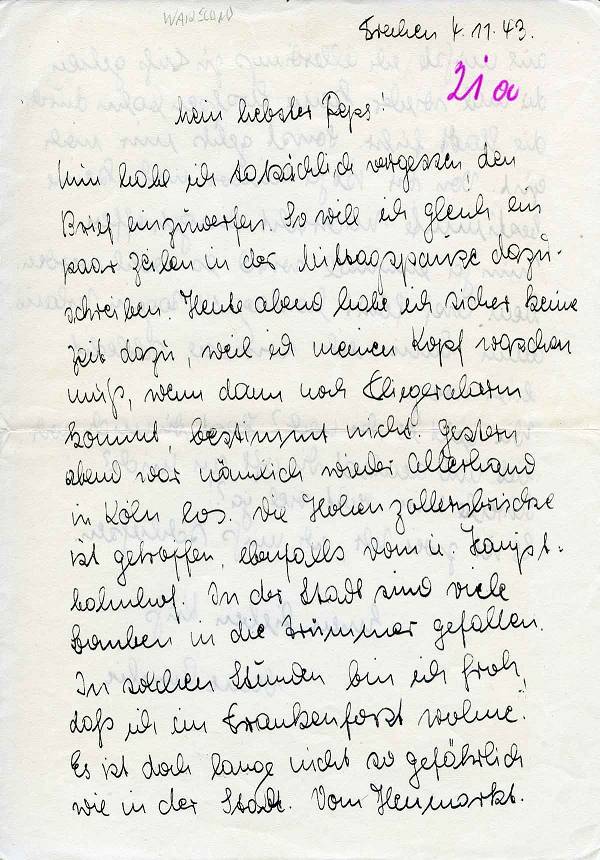 WANSCORD
Frechen 4.11.43.
21a
Mein liebster Peps!
Nun habe ich tatsächlich vergessen, den
Brief einzuwerfen. So will ich gleich ein
paar Zeilen in der Mittagspause dazu-
schreiben. Heute abend habe ich sicher keine
Zeit dazu, weil ich meinen Kopf waschen
muß, wenn dann noch Fliegeralarm
kommt bestimmt nicht. Gestern
abend war nämlich wieder allerhand
in Köln los. Die Hohenzollernbrücke
ist getroffen, ebenfalls Dom u. Haupt-
bahnhof. In der Stadt sind viele
Bomben in die Trümmer gefallen.
In solchen Stunden bin ich froh,
daß ich in Frankenforst wohne.
Es ist doch lange nicht so gefährlich
wie in der Stadt. Vom Heumarkt